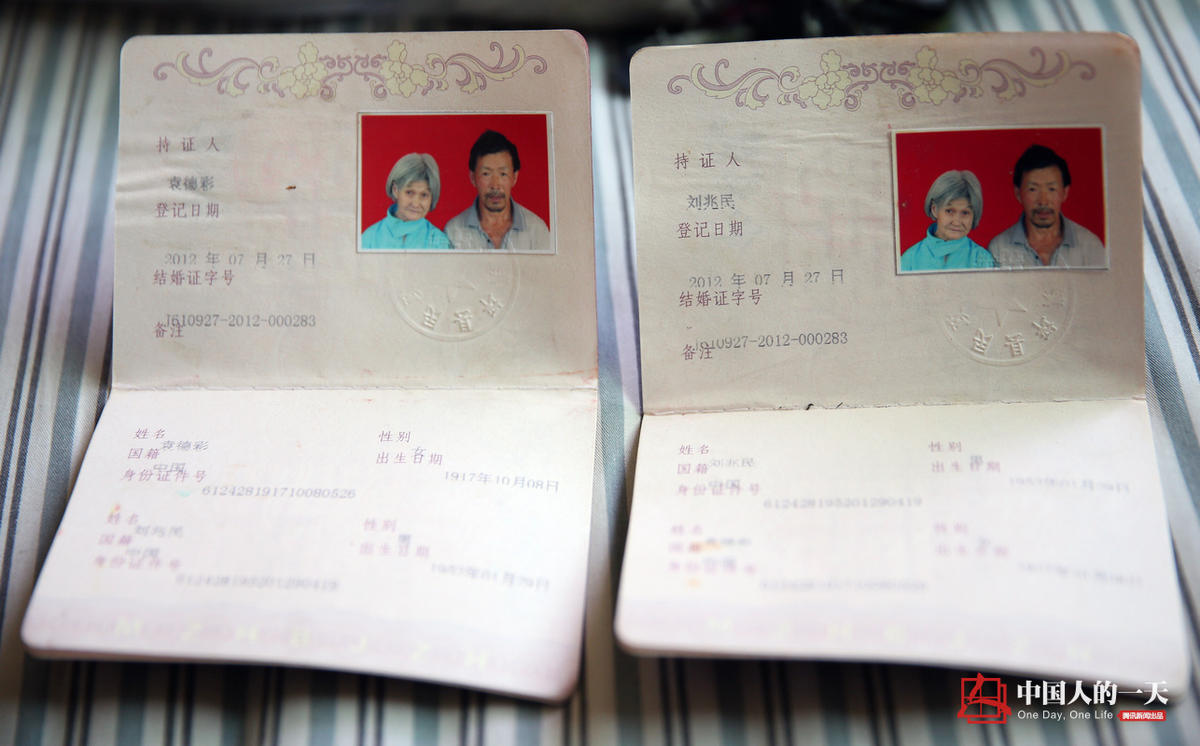 持证人
袁德彩
登记日期
2012 年 07 月 27 日
结婚证字号
J610927-2012-000283
备注
姓名
袁德彩
性别
女
国籍
中国
出生日期
1917年10月08日
身份证件号
612428191710080526
姓名
刘兆民
性别
男
国籍
中国
出生日期
身份证件号
612428195201290419
持证人
刘兆民
登记日期
2012 年 07 月 27 日
结婚证字号
J610927-2012-000283
备注
姓名
刘兆民
性别
男
国籍
中国
出生日期
身份证件号
612428195201290419
姓名
性别
国籍
出生日期
身份证件号
中国人的一天
One Day, One Life
腾讯新闻出品